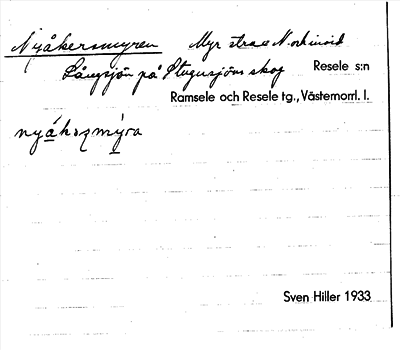 Nyåkersmyren Myr strax N. och invid
Långsjön på Stugusjöns skog Resele s:n
Ramsele och Resele tg., Västernorrl. l.
nyákəzmýra
Sven Hiller 1933